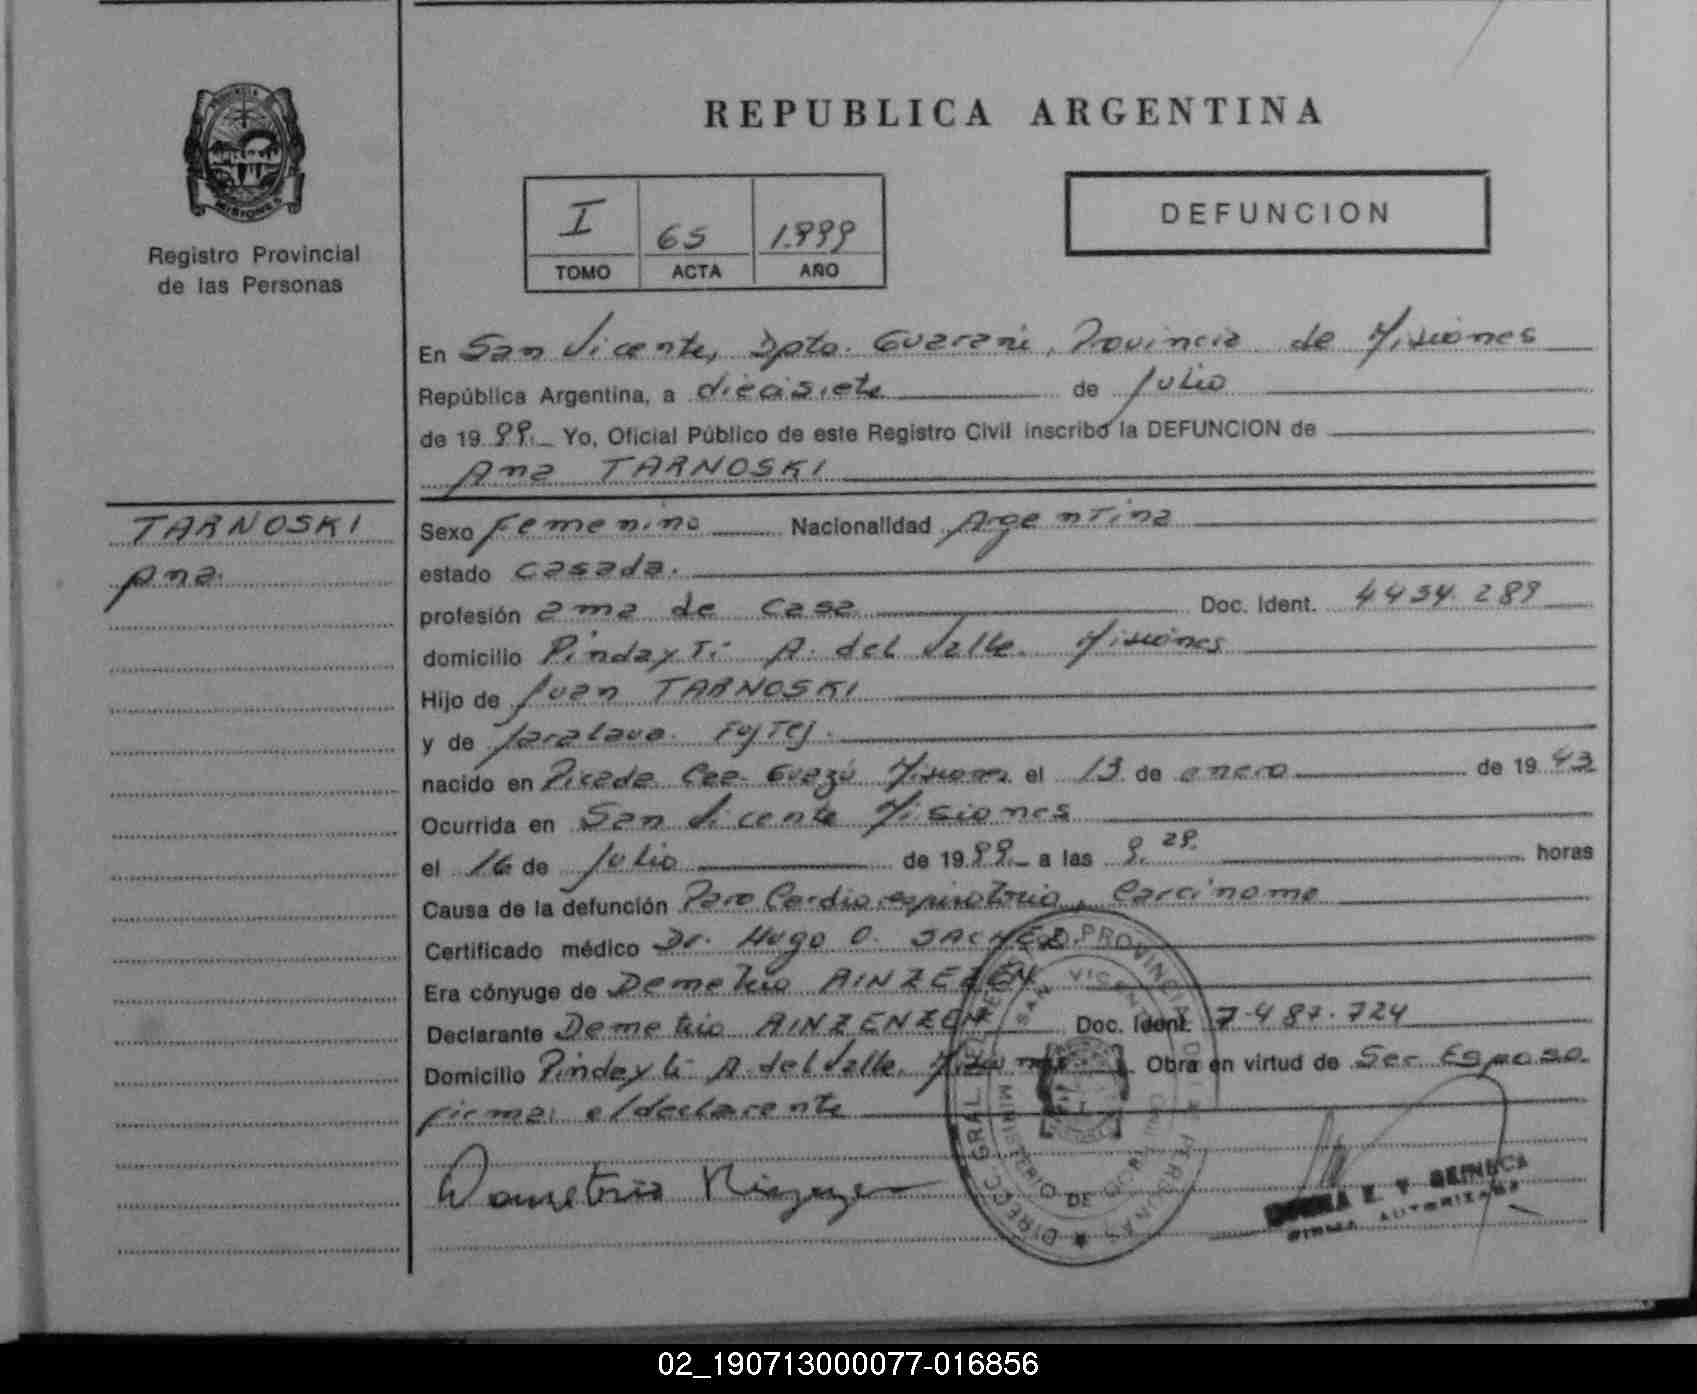 REPUBLICA ARGENTINA
PROVINCIA DE
MISIONES
Registro Provincial
de las Personas
I 65 1.999
TOMO ACTA AÑO
DEFUNCION
En San Vicente, Dpto. Guarani, Provincia de Misiones
República Argentina, a diecisiete de Julio
de 19 99. Yo, Oficial Público de este Registro Civil inscribo la DEFUNCION de
Ana TARNOSKI
TARNOSKI
Ana.
Sexo Femenino Nacionalidad Argentina
estado casada.
profesión ama de casa Doc. Ident. 4454.289
domicilio Pindayti A. del Valle. Misiones
Hijo de Juan TARNOSKI
y de Jaralava
nacido en Picada Guazú Misiones el 13 de enero de 19 43
Ocurrida en San Vicente Misiones
el 16 de Julio de 19 99. a las 9.29. horas
Causa de la defunción Paro Cardiorespiratorio, Carcinoma
Certificado médico Dr. Hugo O.
Era cónyuge de Demetrio
Declarante Demetrio AINZENZEN Doc. Ident. 7.487.724
Domicilio Pindayti A. del Valle. Misiones Obra en virtud de Ser Esposo.
firma: el declarante
Demetrio
DIRECC. GRAL. DEL REGISTRO PROVINCIAL DE LAS PERSONAS
SAN VICENTE
MINISTERIO DE
FIRMA AUTORIZADA
02_190713000077-016856